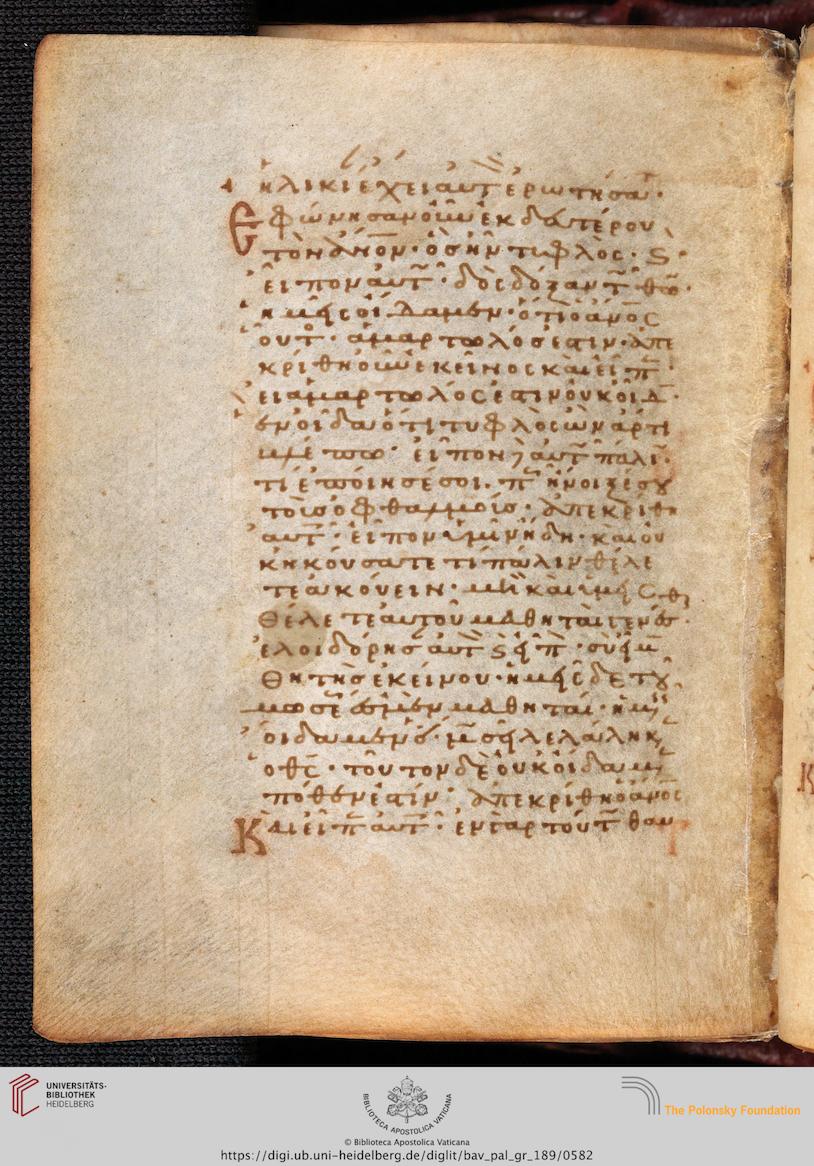 ἡλικί ἔχει αὐτ ἐρωτήσα·
Ἐφώνησαν οὖν ἐκ δευτέρου
τὸν ἄνον· ὃς ἦν τυφλὸς· ϛ
εἶπον αὐτ· δὸς δόξαν τ θω·
ἡμεῖς οἴδαμεν· ὅτι ὁ ἄνος
οὗτ· ἁμαρτωλός ἐστιν· ἀπε
κρίθη οὖν ἐκεῖνος καὶ εἶπ·
εἰ ἁμαρτωλός ἐστιν οὐκ οἶδ·
ἓν οἶδα ὅτι τυφλὸς ὢν ἄρτι
εἶπον αὐτ πάλι·
τί ἐποίησέ σοι· π ἤνοιξέ σου
τοὺς ὀφθαλμούς· ἀπεκρίθη
αὐτ· εἶπον ὑμῖν ἤδη· καὶ οὐ
κ ἠκούσατε τί πάλιν θέλε
τε ἀκούειν· μὴ καὶ ὑμεῖς
θέλετε αὐτοῦ μαθηταὶ γενέσ·
ἐλοιδόρησ αὐτ ϛ εἶπ· σὺ εἶ μ
θητὴς ἐκείνου· ἡμεῖς δὲ τοῦ
μωσέ ἐσμὲν μαθηταί· ἡμ
οἴδαμεν ὁ· μσῆ λελάληκ
ὁ θς· τοῦτον δὲ οὐκ οἴδαμ
πόθεν ἐστίν· ἀπεκρίθη ὁ ἄνος
Καὶ εἶπ αὐτ· ἐν γὰρ τούτ θαυ
UNIVERSITÄTS-
BIBLIOTHEK
HEIDELBERG
BIBLIOTECA APOSTOLICA VATICANA
The Polonsky Foundation
© Biblioteca Apostolica Vaticana
https://digi.ub.uni-heidelberg.de/diglit/bav_pal_gr_189/0582